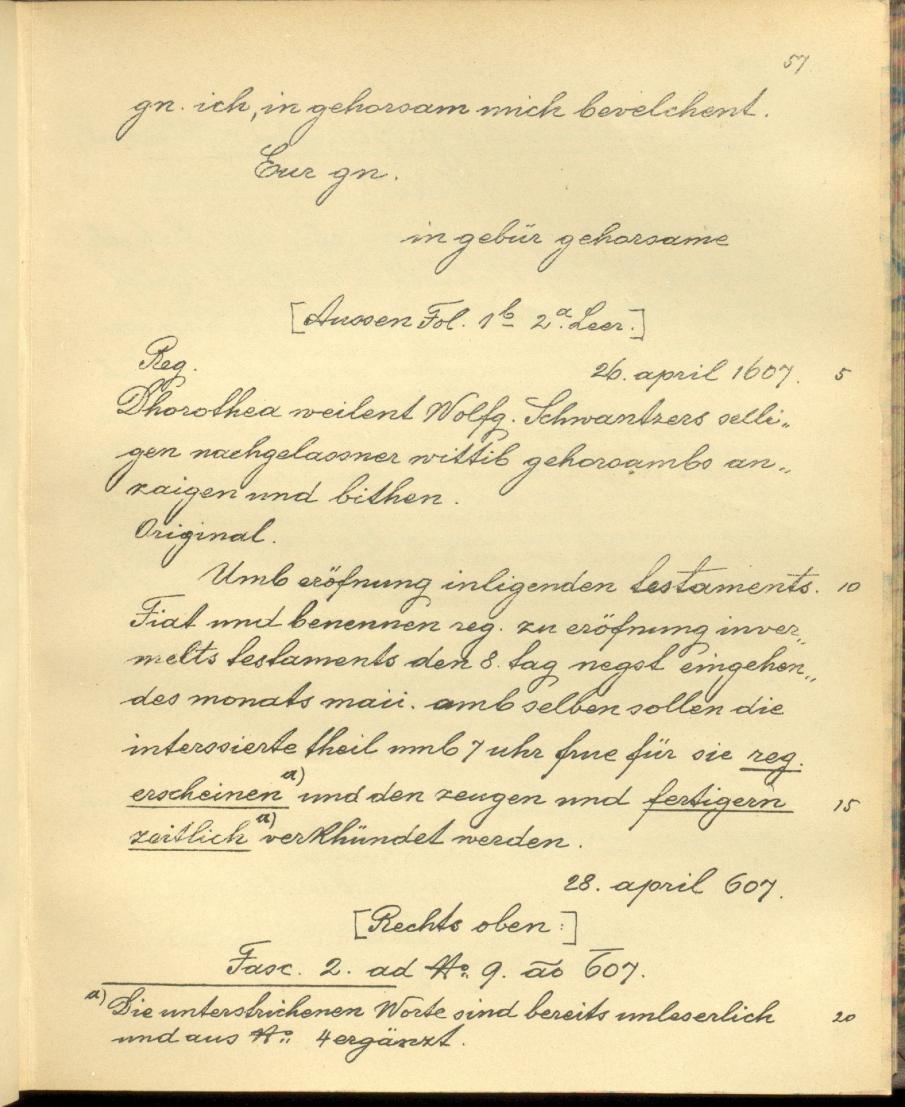 57
gn. ich, in gehorsam mich bevelchent.
Eur gn.
in gebür gehorsame
[Aussen Fol. 1b 2a. Leer.]
Reg.
26. april 1607. 5
Dhorothea weilent Wolfg. Schwantzers selli„
gen nachgelassner wittib gehorsambs an„
zaigen und bithen.
Original.
Umb eröfnung inligenden testaments. 10
Fiat und benennen reg. zu eröfnung inver„
melts testaments den 8. tag negst eingehen„
des monats maii. amb selben sollen die
interssierte theil umb 7 uhr frue für sie reg.
erscheinen a) und den zeugen und fertigern 15
zeitlich a) verkhündet werden.
28. april 607.
[Rechts oben:]
Fasc. 2. ad No. 9. ao 607.
a) Die unterstrichenen Worte sind bereits unleserlich 20
und aus No: 4 ergänzt.